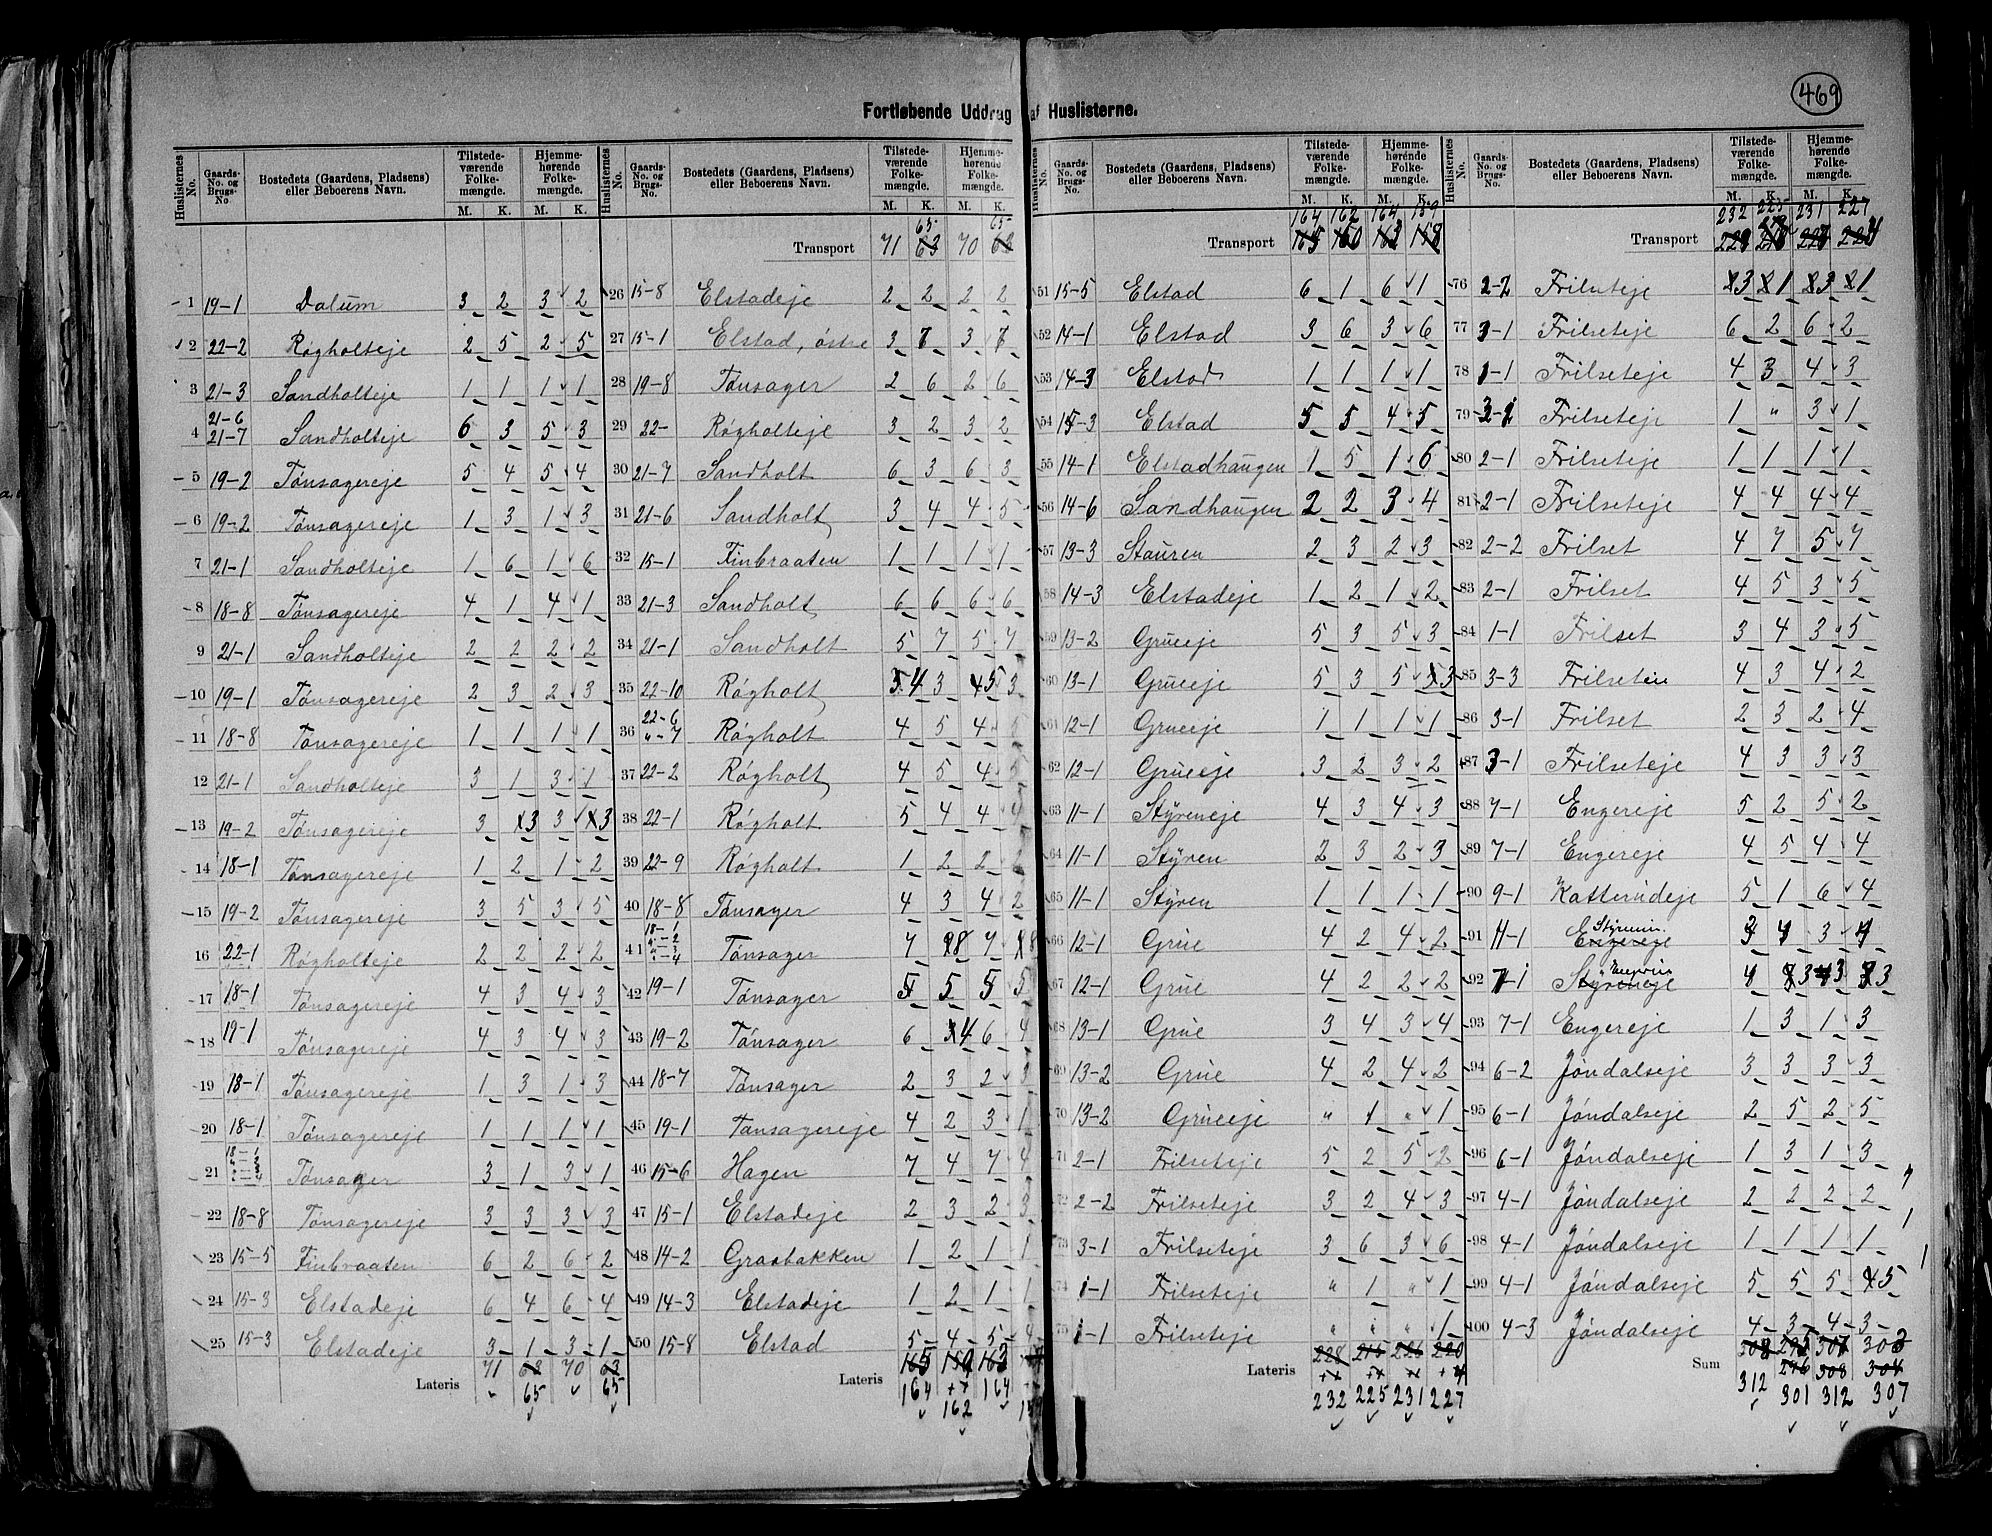 469
Fortløbende Uddrag af Huslisterne.
Huslisternes No. Gaards-No. og Brugs-No. Bostedets (Gaardens, Pladsens) eller Beboerens Navn. Tilstedeværende Folkemængde. M. K. Hjemmehørende Folkemængde. M. K.
1 19-1 Dalum 3 2 3 2
2 22-2 Røgholteje 2 5 2 5
3 21-3 Sandholteje 1 1 1 1
4 21-6 21-7 Sandholteje 6 3 5 3
5 19-2 Tønsagereje 5 4 5 4
6 19-2 Tønsagereje 1 3 1 3
7 21-1 Sandholteje 1 6 1 6
8 18-8 Tønsagereje 4 1 4 1
9 21-1 Sandholteje 2 2 2 2
10 19-1 Tønsagereje 2 3 2 3
11 18-8 Tønsagereje 1 1 1 1
12 21-1 Sandholteje 3 1 3 1
13 19-2 Tønsagereje 3 3 3 3
14 18-1 Tønsagereje 1 2 1 2
15 19-2 Tønsagereje 3 5 3 5
16 22-1 Røgholteje 2 2 2 2
17 18-1 Tønsagereje 4 3 4 3
18 19-1 Tønsagereje 4 3 4 3
19 18-1 Tønsagereje 1 3 1 3
20 18-1 Tønsagereje 1 1 1 1
21 18-1 "-2 "-3 "-4 Tønsager 3 1 3 1
22 18-8 Tønsagereje 3 3 3 3
23 15-5 Finbraaten 6 2 6 2
24 15-3 Elstadeje 6 4 6 4
25 15-3 Elstadeje 3 1 3 1
Lateris 71 63 70 63
65 65
Huslisternes No. Gaards-No. og Brugs-No. Bostedets (Gaardens, Pladsens) eller Beboerens Navn. Tilstedeværende Folkemængde. M. K. Hjemmehørende Folkemængde. M. K.
65 65
Transport 71 63 70 63
26 15-8 Elstadeje 2 2 2 2
27 15-1 Elstad, østre 3 7 3 7
28 19-8 Tønsager 2 6 2 6
29 22- Røgholteje 3 2 3 2
30 21-7 Sandholt 6 3 6 3
31 21-6 Sandholt 3 4 4 5
32 15-1 Finbraaten 1 1 1 1
33 21-3 Sandholt 6 6 6 6
34 21-1 Sandholt 5 7 5 7
35 22-10 Røgholt 4 3 5 3
36 22-6 "-7 Røgholt 4 5 4 5
37 22-2 Røgholt 4 5 4 5
38 22-1 Røgholt 5 4 4 4
39 22-9 Røgholt 1 2 2 2
40 18-8 Tønsager 4 3 4 2
41 18-1 "-2 "-3 "-4 Tønsager 7 8 7 8
42 19-1 Tønsager 5 5 5 5
43 19-2 Tønsager 6 4 6 4
44 18-7 Tønsager 2 3 2 3
45 19-1 Tønsagereje 4 2 3 1
46 15-6 Hagen 7 4 7 4
47 15-1 Elstadeje 2 3 2 3
48 14-2 Grasbakken 1 2 1 1
49 14-3 Elstadeje 1 2 1 1
50 15-8 Elstad 5 4 5 4
Lateris 165 163
164 162 164
Huslisternes No. Gaards-No. og Brugs-No. Bostedets (Gaardens, Pladsens) eller Beboerens Navn. Tilstedeværende Folkemængde. M. K. Hjemmehørende Folkemængde. M. K.
164 162 164 159
Transport 165 160 163 158
51 15-5 Elstad 6 1 6 1
52 14-1 Elstad 3 6 3 6
53 14-3 Elstad 1 1 1 1
54 15-3 Elstad 5 5 4 5
55 14-1 Elstadhaugen 1 5 1 6
56 14-6 Sandhaugen 2 2 3 4
57 13-3 Stauren 2 3 2 3
58 14-3 Elstadeje 1 2 1 2
59 13-2 Grueeje 5 3 5 3
60 13-1 Grueeje 5 3 5 3
61 12-1 Grueeje 1 1 1 1
62 12-1 Grueeje 3 2 3 2
63 11-1 Styreneje 4 3 4 3
64 11-1 Styren 2 3 2 3
65 11-1 Styren 1 1 1 1
66 12-1 Grue 4 2 4 2
67 12-1 Grue 4 2 2 2
68 13-1 Grue 3 4 3 4
69 13-2 Grue 4 2 4 2
70 13-2 Grueeje " 1 " 1
71 2-1 Frilseteje 5 2 5 2
72 2-2 Frilseteje 3 2 4 3
73 3-1 Frilseteje 3 6 3 6
74 1-1 Frilseteje " 1 " 1
75 1-1 Frilseteje " " " 1
Lateris 228 215 226 220
232 225 231 227
Huslisternes No. Gaards-No. og Brugs-No. Bostedets (Gaardens, Pladsens) eller Beboerens Navn. Tilstedeværende Folkemængde. M. K. Hjemmehørende Folkemængde. M. K.
232 225 231 227
Transport
76 2-2 Frilseteje 3 1 3 1
77 3-1 Frilseteje 6 2 6 2
78 1-1 Frilseteje 4 3 4 3
79 3-2 Frilseteje 1 " 3 1
80 2-1 Frilseteje 1 1 1 1
81 2-1 Frilseteje 4 4 4 4
82 2-2 Frilset 4 7 5 7
83 2-1 Frilset 4 5 3 5
84 1-1 Frilset 3 4 3 5
85 3-3 Frilseteie 4 3 4 2
86 3-1 Frilset 2 3 2 4
87 3-1 Frilseteje 4 3 3 3
88 7-1 Engereje 5 2 5 2
89 7-1 Engereje 4 5 4 4
90 9-1 Katterudeje 5 1 6 4
91 11-1 Engereje 3 4 3 4
92 7-1 Styreneje 4 3 3 3
93 7-1 Engereje 1 3 1 3
94 6-2 Jøndalseje 3 3 3 3
95 6-1 Jøndalseje 2 5 2 5
96 6-1 Jøndalseje 1 3 1 3
97 4-1 Jøndalseje 2 2 2 2
98 4-1 Jøndalseje 1 1 1 1
99 4-1 Jøndalseje 5 5 5 5
100 4-3 Jøndalseje 4 3 4 3
Sum 308 295 307 303
296 308 304
312 301 312 307